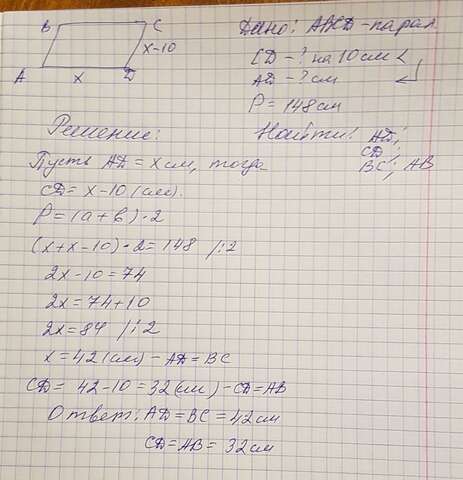 B C
x-10
A x D
Дано: ABCD-парал.
CD - ? на 10см <
AD - ? см
P = 148см
Решение:
Найти: AD;
CD;
BC; AB
Пусть AD = x см, тогда
CD = x-10 (см).
P = (a+b)·2
(x+x-10)·2=148 /:2
2x-10=74
2x=74+10
2x=84 /:2
x=42(см) - AD=BC
CD= 42-10=32(см)-CD=AB
Ответ: AD=BC=42см
CD=AB= 32см